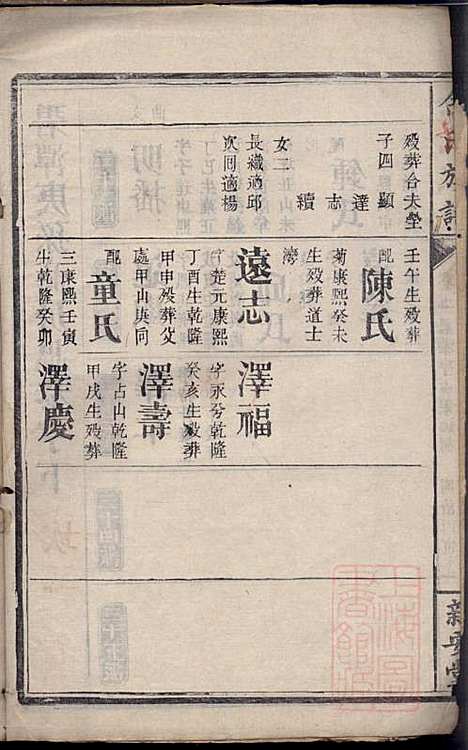 殁葬合夫塋
子四 顯
達
志
續
女三
長鐵適邱
次同適楊
壬午生殁葬
配
陳氏
菊康熙癸未
生殁葬道士
灣
遠志
字楚元康熙
丁酉生乾隆
甲申殁葬父
處甲山庚向
配
童氏
三康熙壬寅
生乾隆癸卯
澤福
字永兮乾隆
癸亥生殁葬
澤壽
字占山乾隆
甲戌生殁葬
澤慶
氏族譜
上海圖書館藏